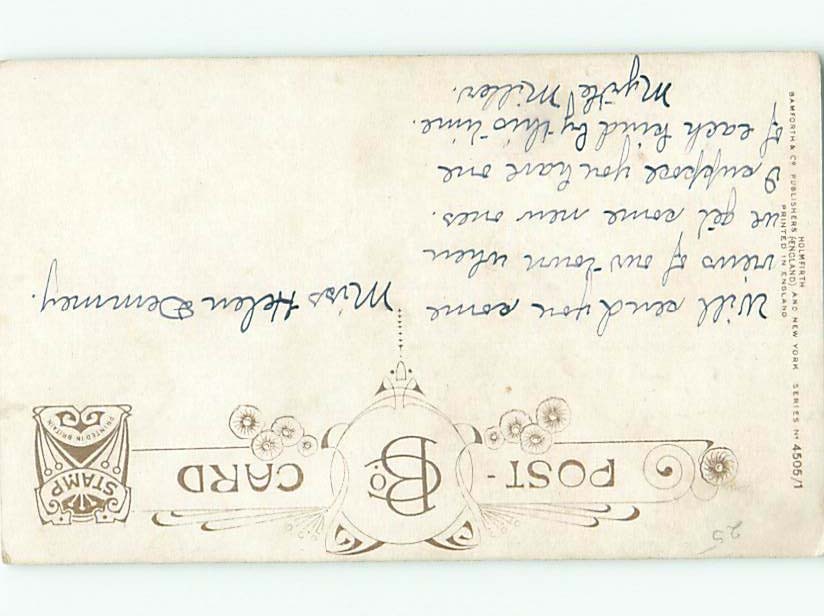 25
POST-
CARD
B Co
STAMP
PRINTED IN BRITAIN
Will send you some
views of our town when
we get some new ones.
I suppose you have one
of each kind by this time.
Myrtle Miller.
Miss Helen Demmey.
BAMFORTH & Co PUBLISHERS HOLMFIRTH (ENGLAND) AND NEW YORK SERIES No 4505/1
PRINTED IN ENGLAND